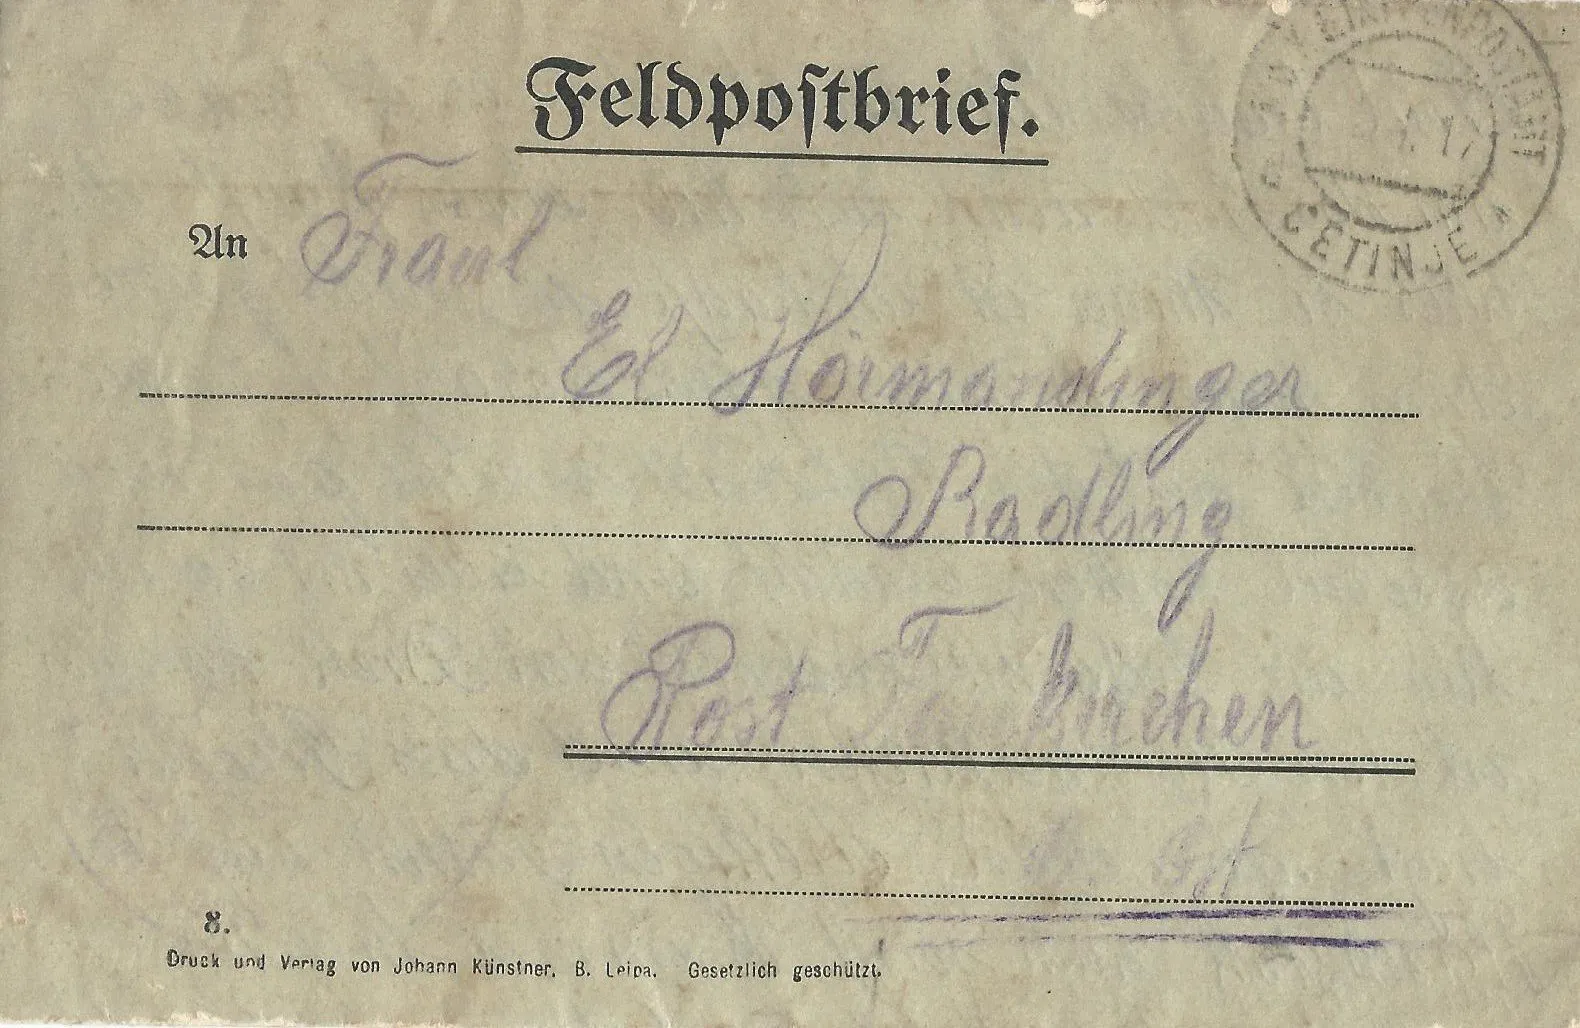 Feldpostbrief.
K.u.K. ETAPPENPOSTAMT
17
CETINJE
An Fräul
El Hörmandinger
Radling
Post Taufkirchen
8.
Druck und Verlag von Johann Künstner, B. Leipa. Gesetzlich geschützt.